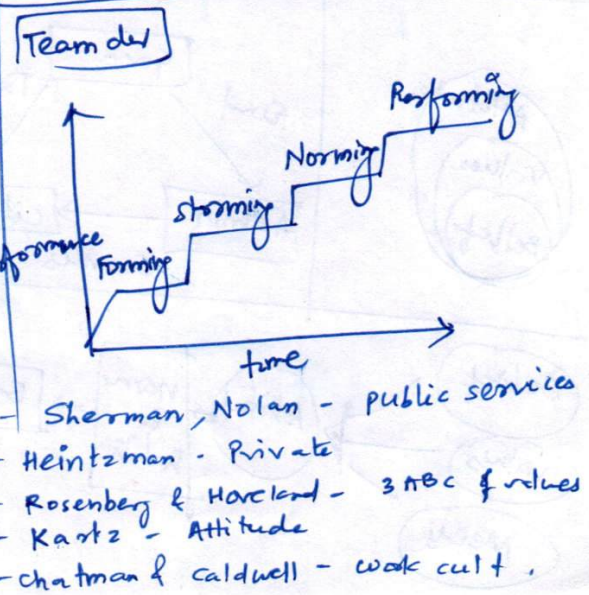 Team dev
Performing
Norming
Storming
Forming
formance
time
- Sherman, Nolan - public services
- Heintzman - Private
- Rosenberg & Hoveland - 3 ABC of values
- Kartz - Attitude
- Chatman & Caldwell - work cult.